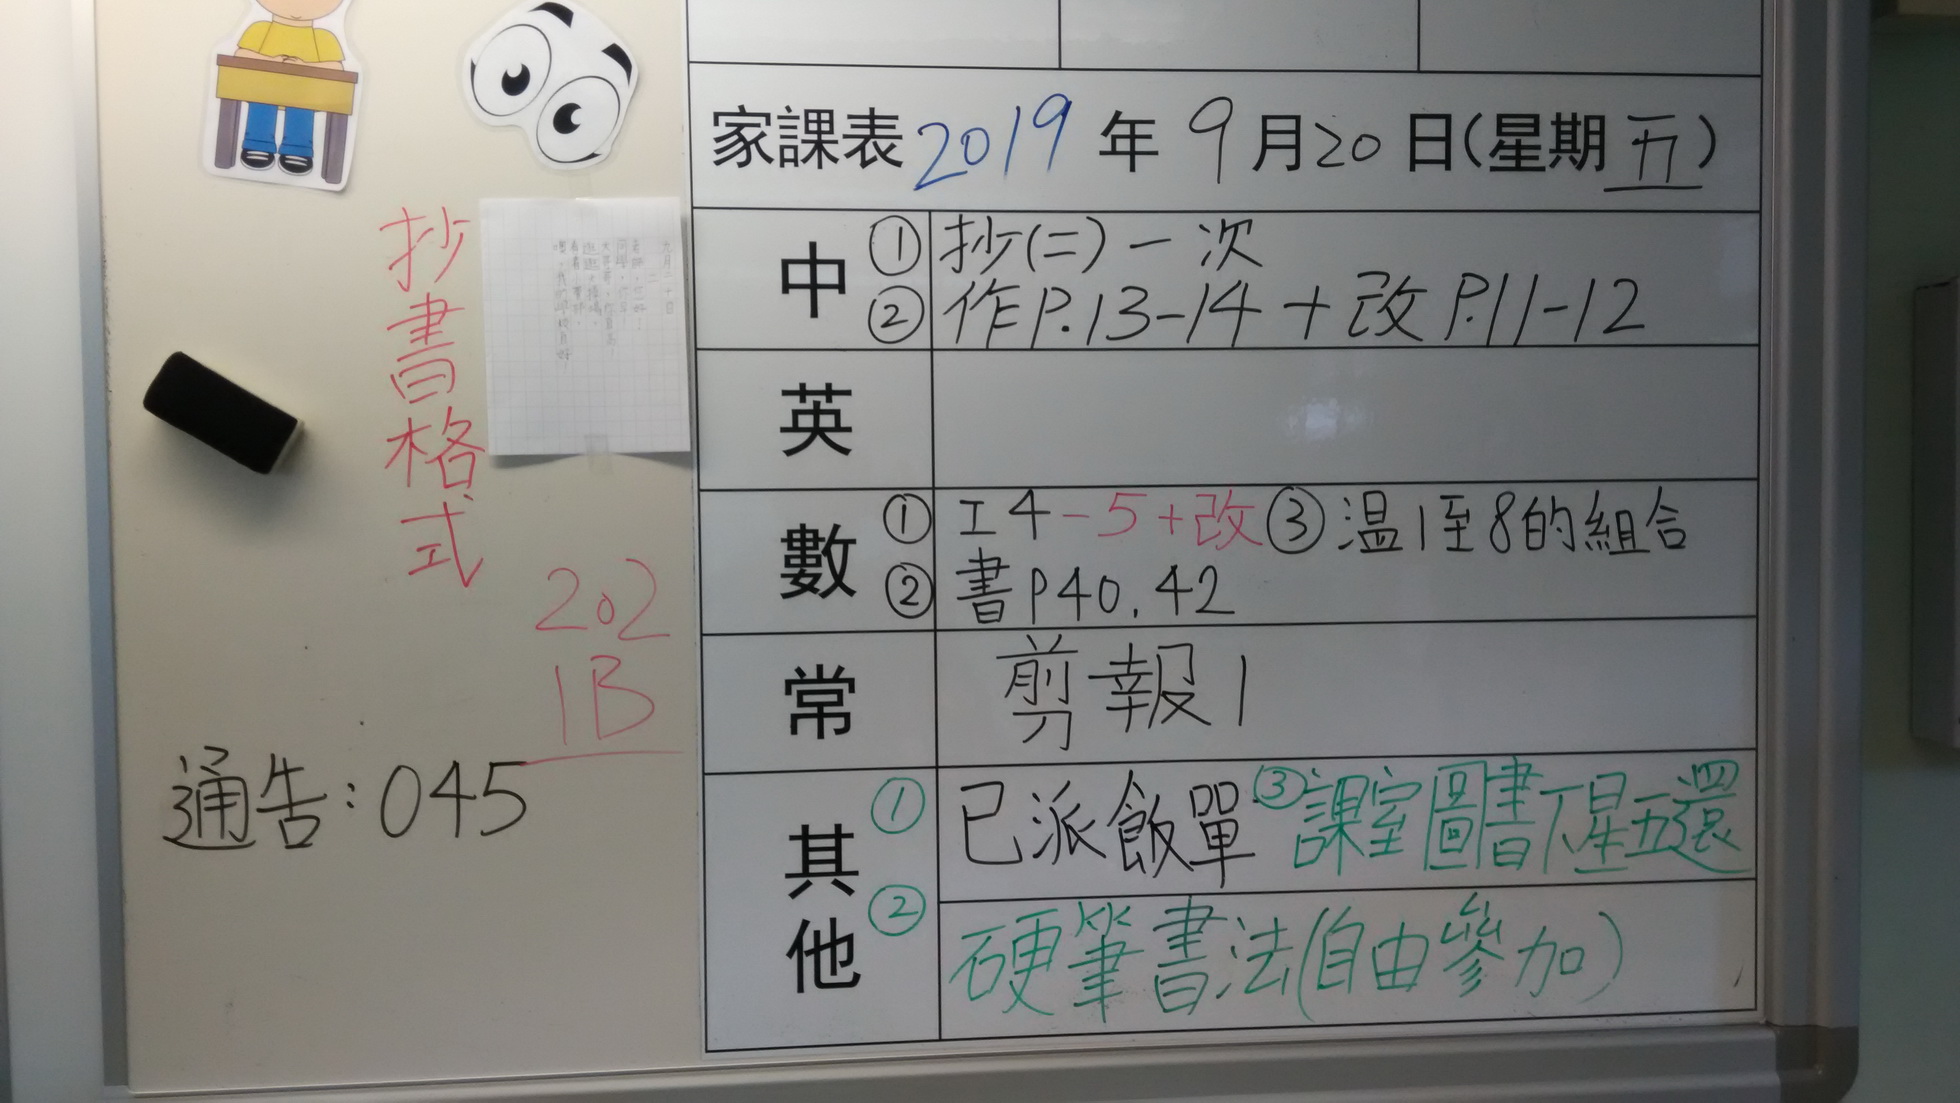 家課表 2019 年 9 月 20 日(星期 五)
中 ① 抄(二)一次
② 作P.13-14+改P.11-12
英
數 ① 工4-5+改 ③ 温1至8的組合
② 書P40.42
常 剪報1
其他 ① 已派飯單 ③ 課室圖書下星五還
② 硬筆書法(自由參加)
抄書格式
202
1B
通告:045
九月二十日
二
老師,您好!
同學,你早!